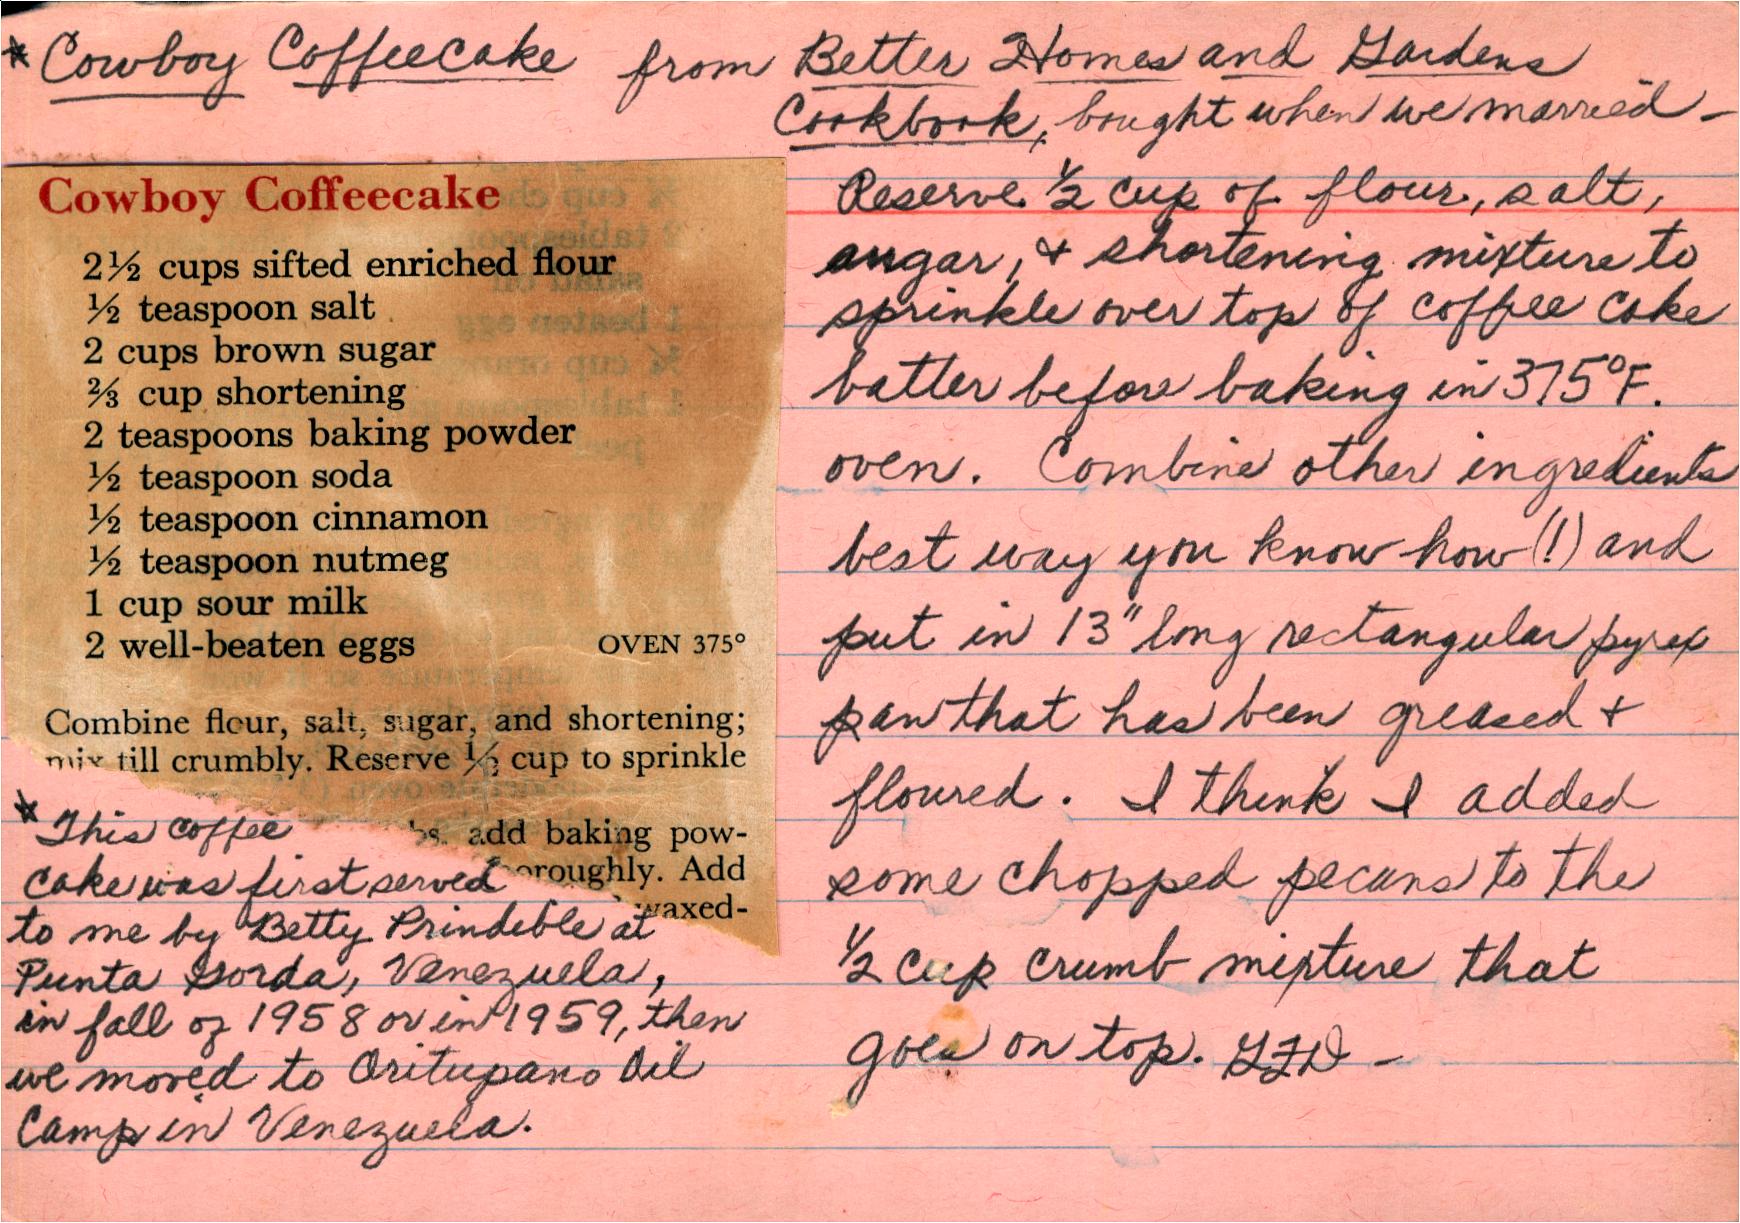 * Cowboy Coffeecake from Better Homes and Gardens
Cookbook, bought when we married –
Cowboy Coffeecake
2½ cups sifted enriched flour
½ teaspoon salt
2 cups brown sugar
⅔ cup shortening
2 teaspoons baking powder
½ teaspoon soda
½ teaspoon cinnamon
½ teaspoon nutmeg
1 cup sour milk
2 well-beaten eggs OVEN 375°
Combine flour, salt, sugar, and shortening;
mix till crumbly. Reserve ½ cup to sprinkle
bs, add baking pow-
oroughly. Add
waxed-
* This coffee
cake was first served
to me by Betty Prindeble at
Punta Gorda, Venezuela,
in fall of 1958 or in 1959, then
we moved to Oritupano Oil
Camp in Venezuela.
Reserve ½ cup of flour, salt,
sugar, & shortening mixture to
sprinkle over top of coffee cake
batter before baking in 375°F.
oven. Combine other ingredients
best way you know how (!) and
put in 13" long rectangular pyrex
pan that has been greased +
floured. I think I added
some chopped pecans to the
½ cup crumb mixture that
goes on top. GFD –